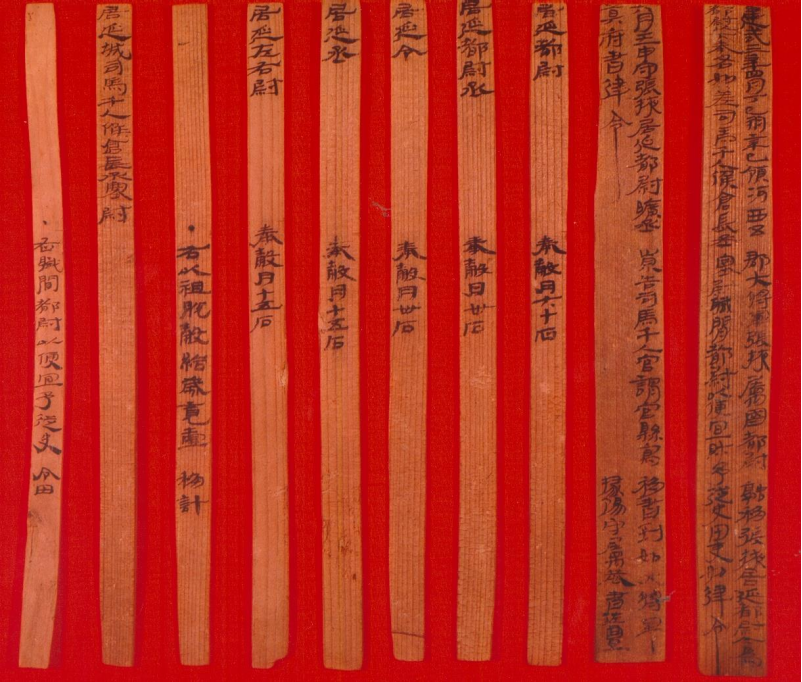 建武三年四月丁巳朔辛巳領河西五郡大將軍張掖屬國都尉融移張掖居延都尉今為
都尉以下奉各如差司馬千人候倉長丞塞尉職閒都尉以便宜財予從史田吏如律令
六月壬申守張掖居延都尉曠丞崇告司馬千人官謂官縣寫移書到如大將軍
莫府書律令 掾陽守屬恭書佐豐
居延都尉 奉穀月六十石
居延都尉丞 奉穀月卅石
居延令 奉穀月卅石
居延丞 奉穀月十五石
居延左右尉 奉穀月十五石
・右以祖脫穀給歲竟壹移計
居延城司馬千人候倉長丞塞尉
・右職閒都尉以便宜予從史令田